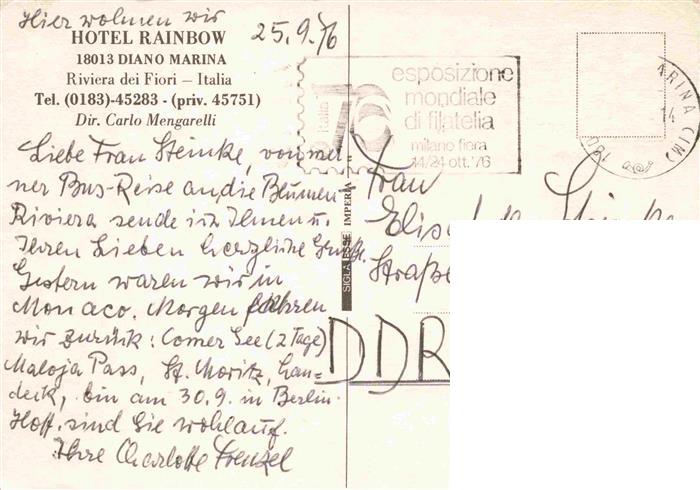 Hier wohnen wir
HOTEL RAINBOW
18013 DIANO MARINA
Riviera dei Fiori – Italia
Tel. (0183)-45283 - (priv. 45751)
Dir. Carlo Mengarelli
25.9.76
Liebe Frau Steinke, von mei
ner Bus-Reise an die Blumen
Riviera sende ich Ihnen u.
Ihren Lieben herzliche Grüße.
Gestern waren wir in
Monaco. Morgen fahren
wir zurück: Comer See (2 Tage)
Maloja Pass, St. Moritz, Lan-
deck, bin am 30.9. in Berlin.
Hoff. sind Sie wohlauf.
Ihre Charlotte Frenzel
Italia 76
esposizione
mondiale
di filatelia
milano fiera
14/24 ott. '76
ARINA (IM)
14
180
SIGLA ESSE IMPERIA
Frau
Straße
DDR